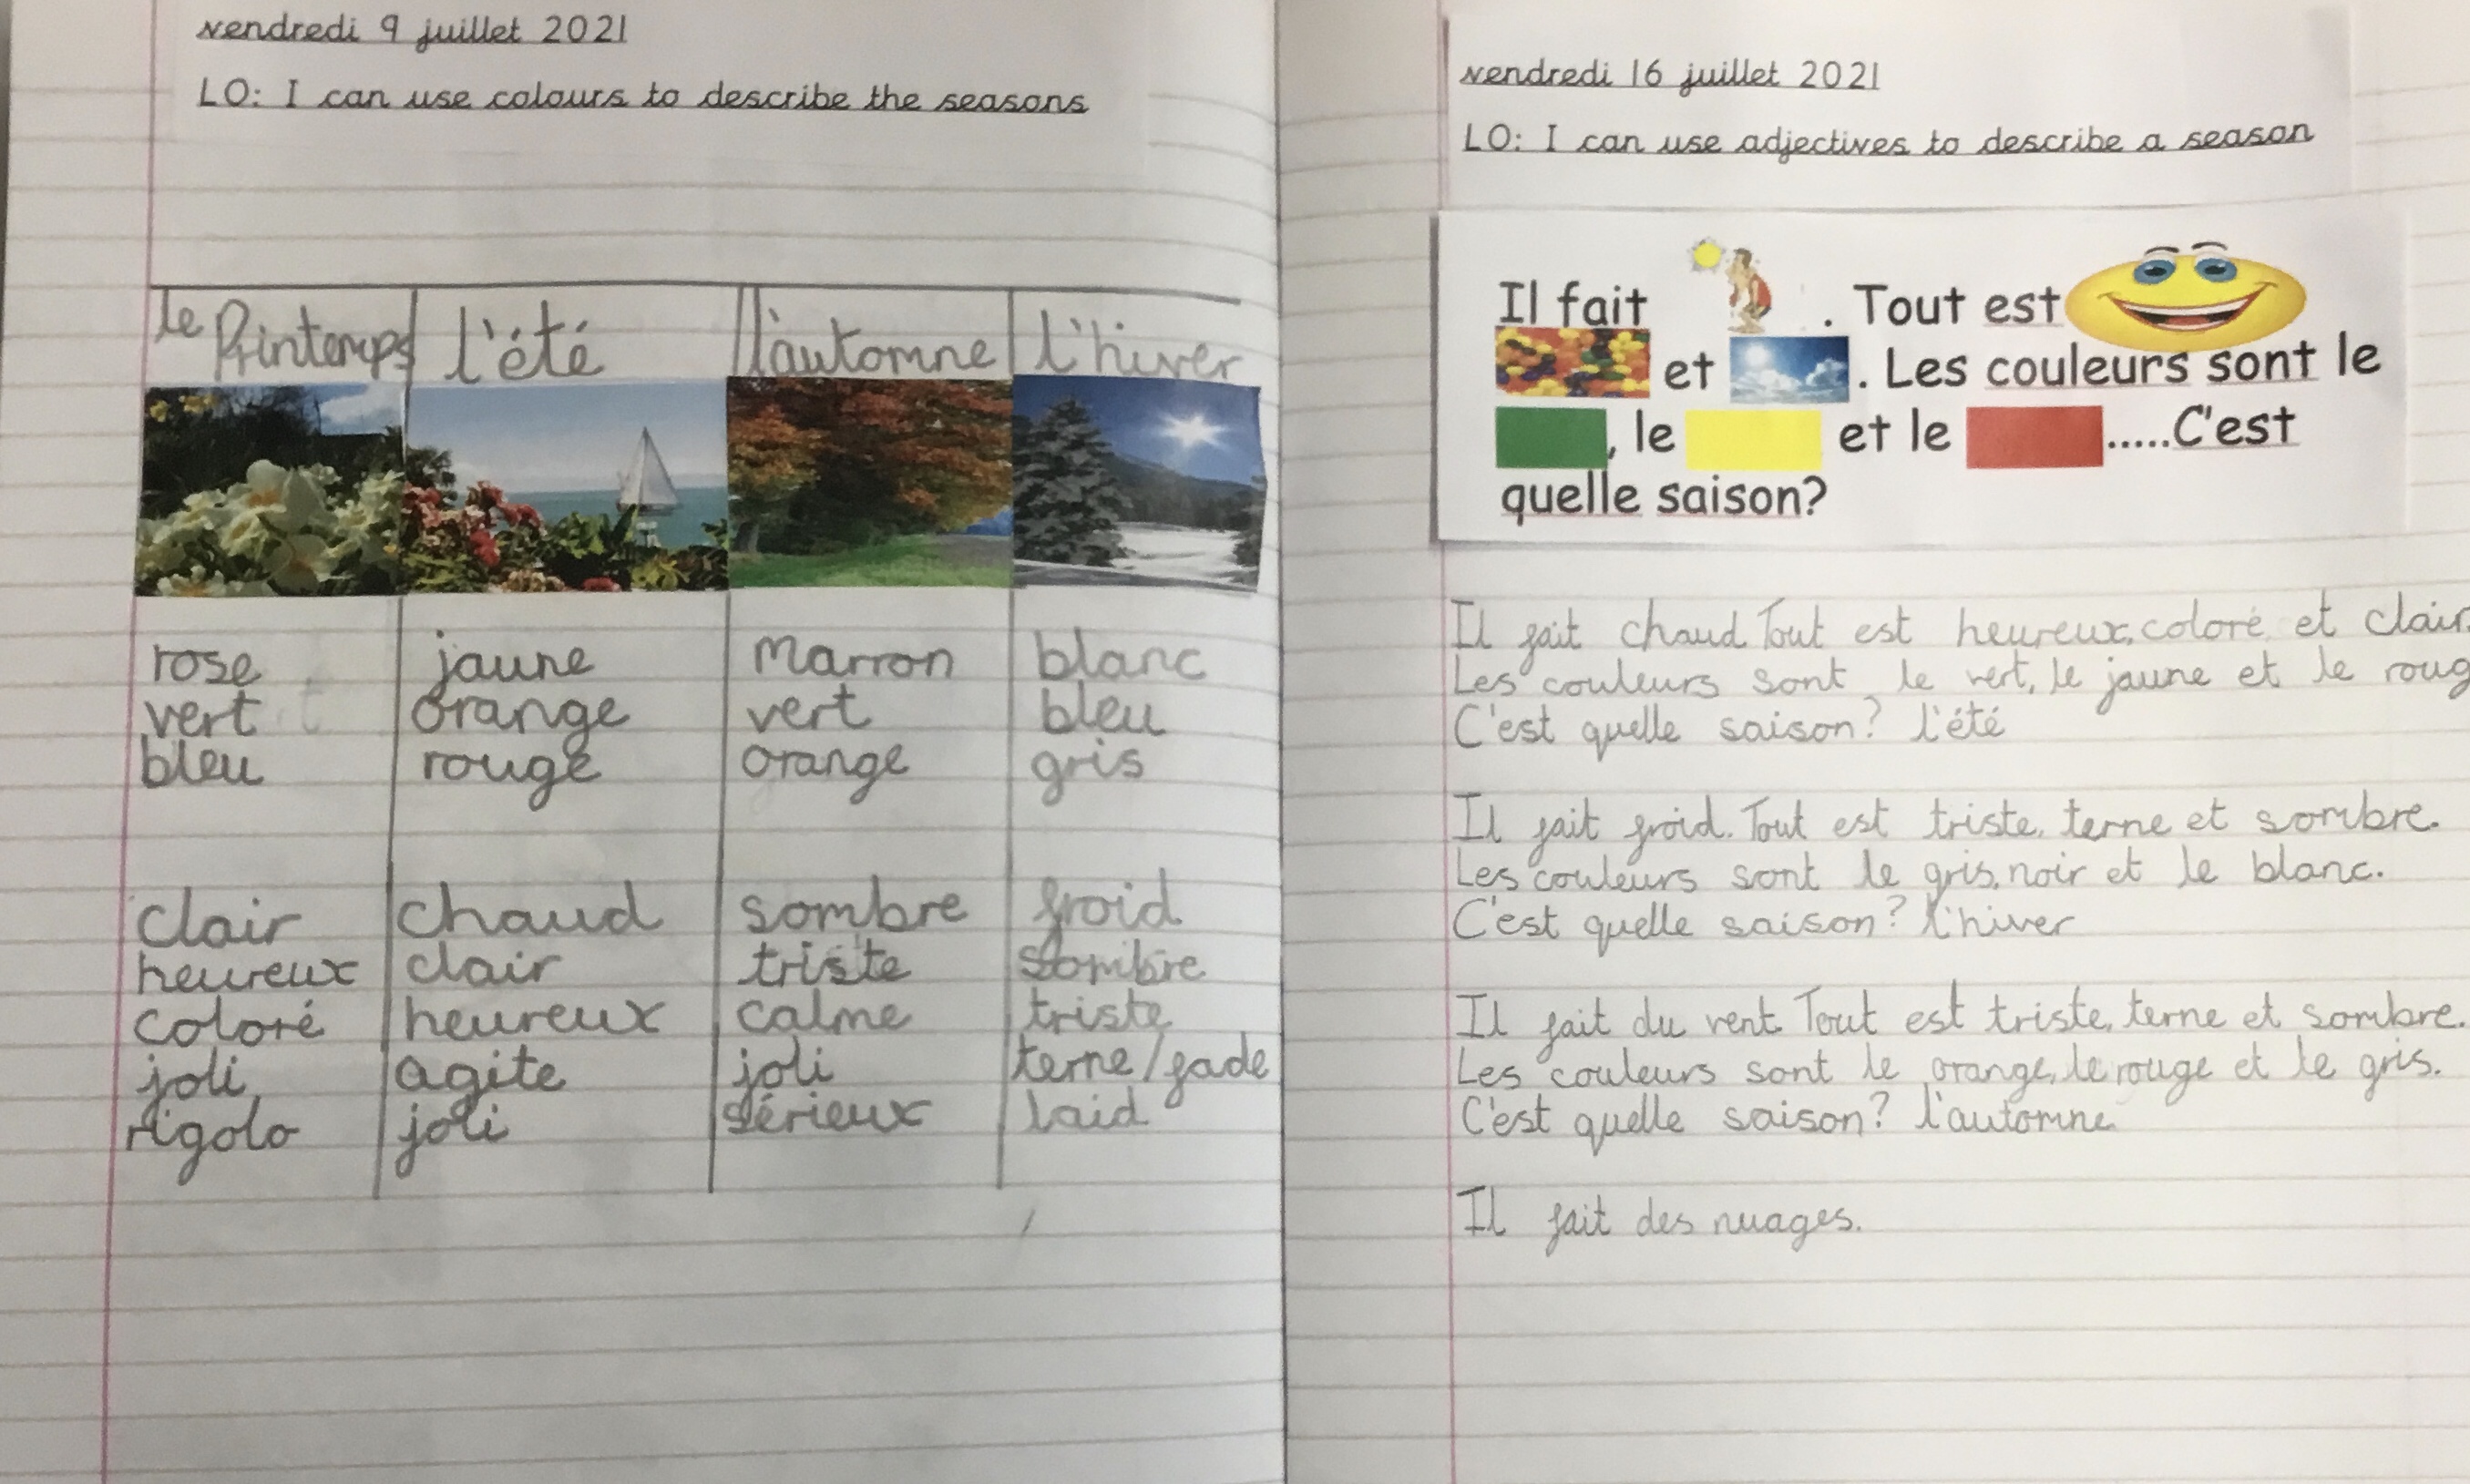 vendredi 9 juillet 2021
LO: I can use colours to describe the seasons
le Printemps l'été l'automne l'hiver
rose jaune marron blanc
vert orange vert bleu
bleu rouge orange gris
clair chaud sombre froid
heureux clair triste sombre
coloré heureux calme triste
joli agite joli terne/fade
rigolo joli sérieux laid
vendredi 16 juillet 2021
LO: I can use adjectives to describe a season
Il fait . Tout est
et . Les couleurs sont le
, le et le .....C'est
quelle saison?
Il fait chaud. Tout est heureux, coloré et clair.
Les couleurs sont le vert, le jaune et le roug
C'est quelle saison? l'été
Il fait froid. Tout est triste, terne et sombre.
Les couleurs sont le gris, noir et le blanc.
C'est quelle saison? l'hiver
Il fait du vent. Tout est triste, terne et sombre.
Les couleurs sont le orange, le rouge et le gris.
C'est quelle saison? l'automne
Il fait des nuages.